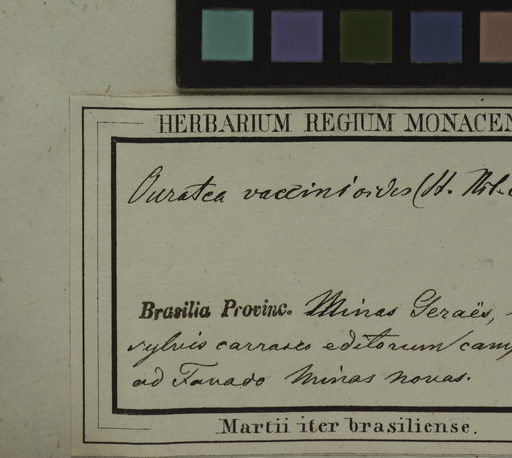 HERBARIUM REGIUM MONACEN
Ouratea vaccinioides (St. Hil.
Brasilia Provinc. Minas Geraës,
sylvis carrasco editorum camp
ad Fanado Minas novas.
Martii iter brasiliense.